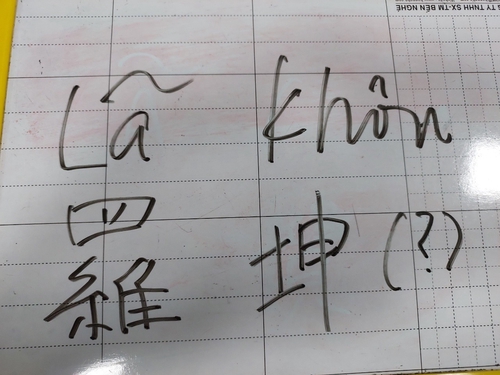 TY TNHH SX-TM BẾN NGHÉ
Lã Khôn
羅 坤 (?)